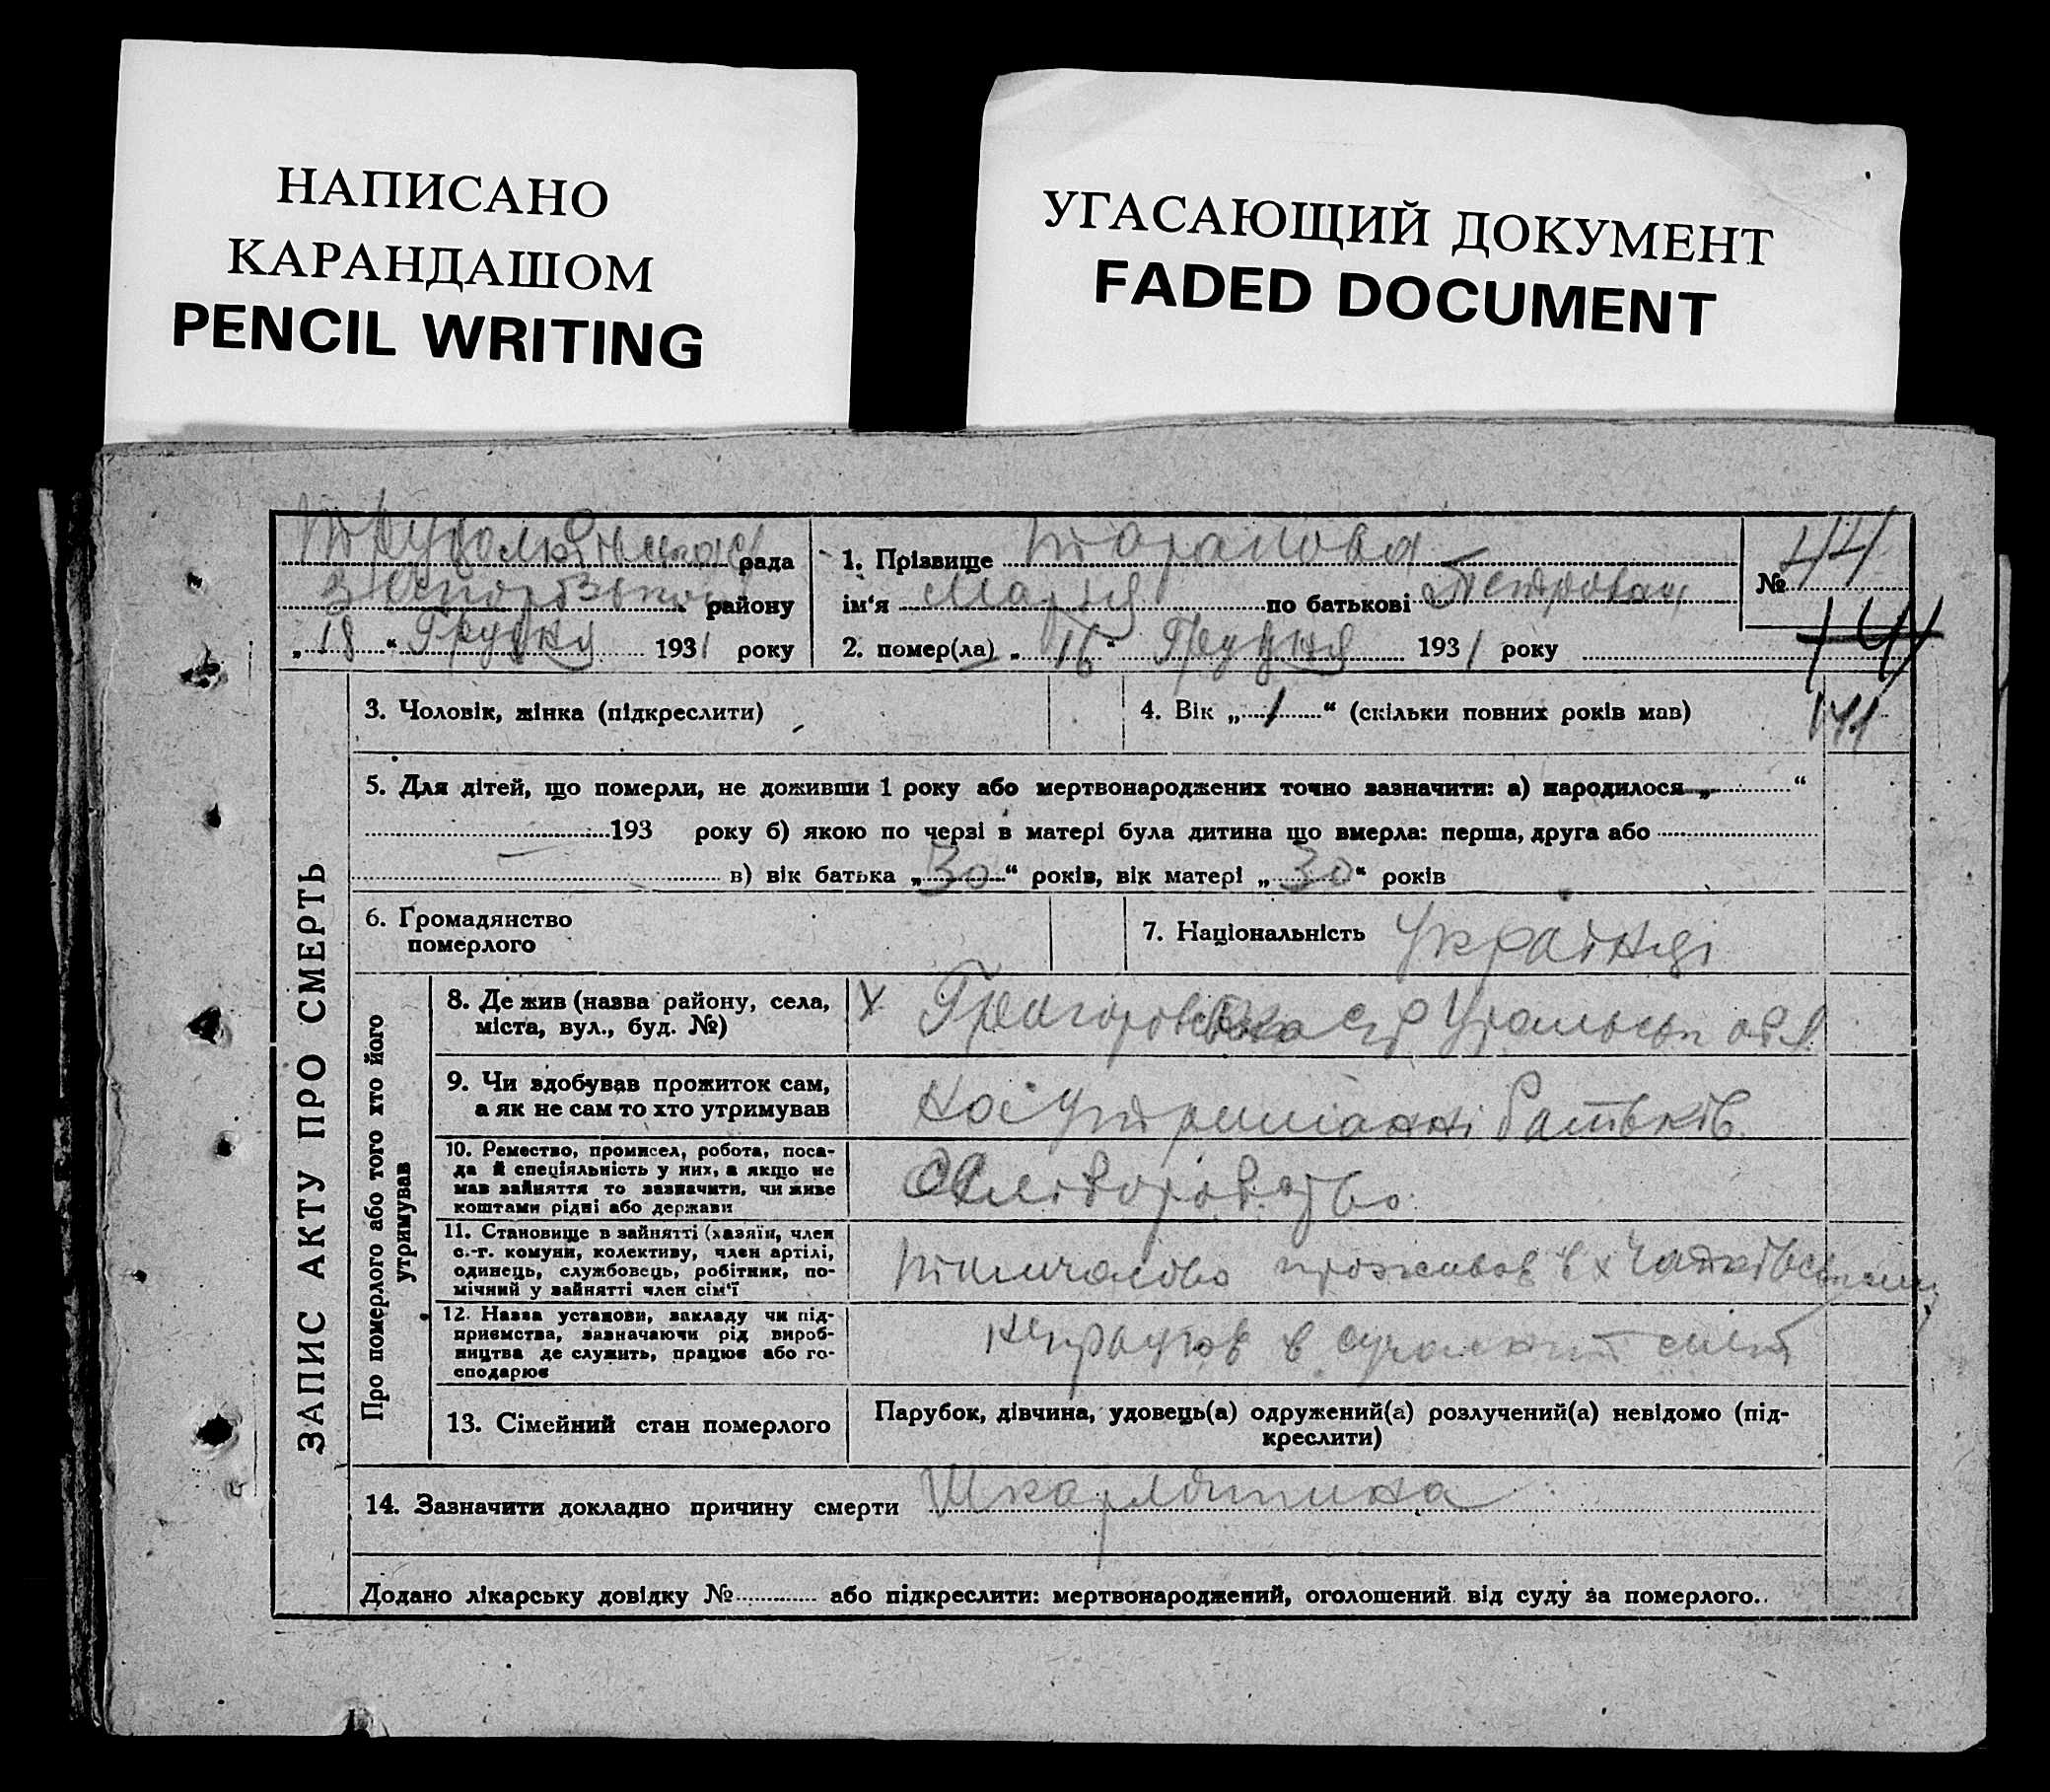 НАПИСАНО
КАРАНДАШОМ
PENCIL WRITING
УГАСАЮЩИЙ ДОКУМЕНТ
FADED DOCUMENT
Трудолюбівська рада
району
„18“ Грудня 1931 року
1. Прізвище Таранова
ім'я Марія по батькові Петровна
2. помер(ла) „16“ Грудня 1931 року
№ 44
141
141
ЗАПИС АКТУ ПРО СМЕРТЬ
3. Чоловік, жінка (підкреслити)
4. Вік „1“ (скільки повних років мав)
5. Для дітей, що померли, не доживши 1 року або мертвонароджених точно зазначити: а) народилося „ “
193 року б) якою по черзі в матері була дитина що вмерла: перша, друга або
в) вік батька „30“ років, вік матері „30“ років
6. Громадянство
померлого
7. Національність Українці
Про померлого або того хто його
утримував
8. Де жив (назва району, села,
міста, вул., буд. №)
х Григоровка обл
9. Чи здобував прожиток сам,
а як не сам то хто утримував
на утриманні батьків
10. Ремество, промисел, робота, поса-
да й спеціяльність у них, а якщо не
мав зайняття то зазначити, чи живе
коштами рідні або держави
Хліборобство
11. Становище в зайнятті (хазяїн, член
с.-г. комуни, колективу, член артілі,
одинець, службовець, робітник, по-
мічний у зайнятті член сім'ї
тимчасово проживав в х
12. Назва установи, закладу чи під-
приємства, зазначаючи рід вироб-
ництва де служить, працює або го-
сподарює
в
13. Сімейний стан померлого
Парубок, дівчина, удовець(а) одружений(а) розлучений(а) невідомо (під-
креслити)
14. Зазначити докладно причину смерти Шкарлятина
Додано лікарську довідку № або підкреслити: мертвонароджений, оголошений від суду за померлого.